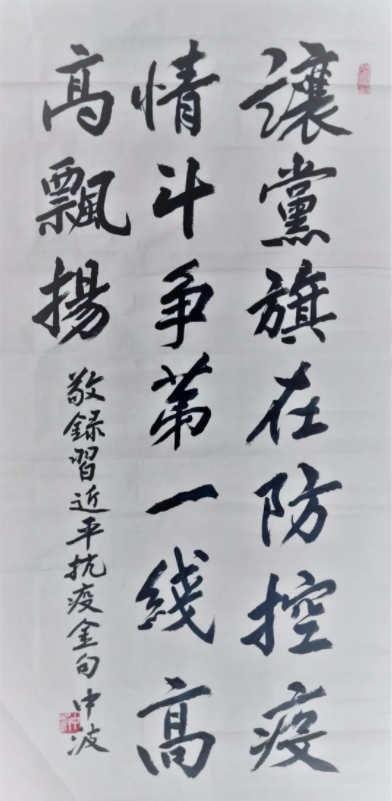 讓黨旗在防控疫
情斗争第一线高
高飄揚
敬録習近平抗疫金句 中波